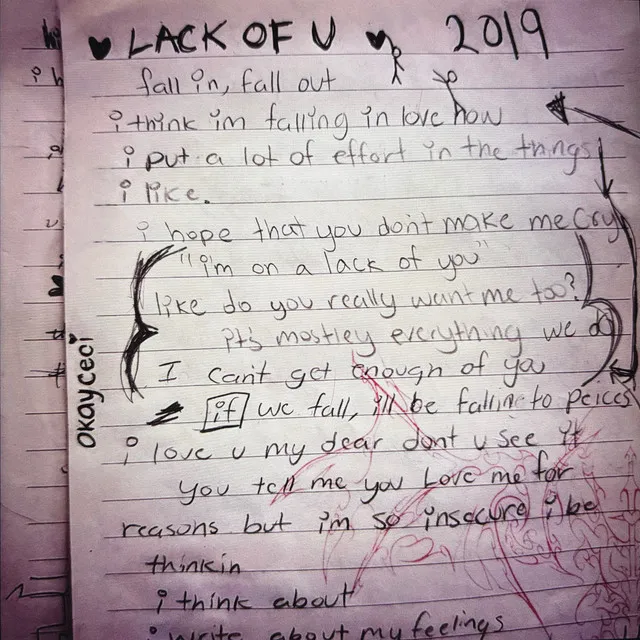 LACK OF U 2019
fall in, fall out
i think im falling in love now
i put a lot of effort in the things
i like.
i hope that you dont make me cry
"i'm on a lack of you"
like do you really want me too?
it's mostley everything we do
I can't get enough of you
if we fall, i'll be falling to peices
i love u my dear dont u see it
you tell me you Love me for
reasons but i'm so insecure i be
thinkin
i think about
i write about my feelings
okayceci